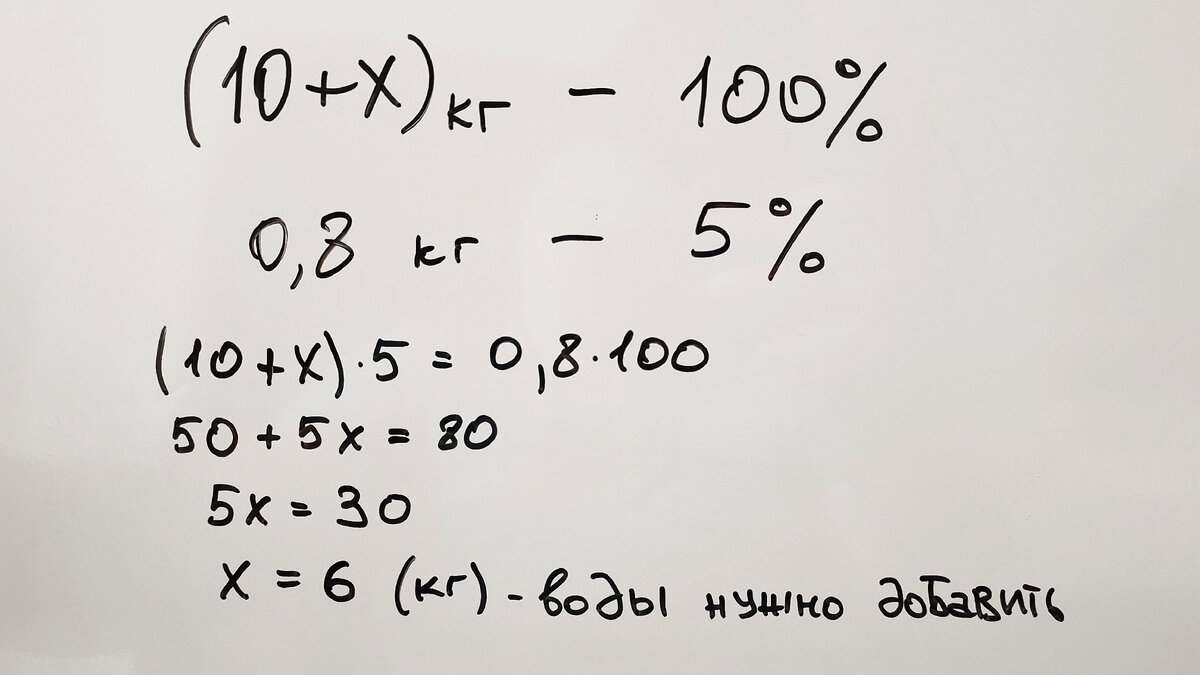 (10+x)кг - 100%
0,8 кг - 5%
(10+x)·5 = 0,8·100
50 + 5x = 80
5x = 30
x = 6 (кг) - воды нужно добавить